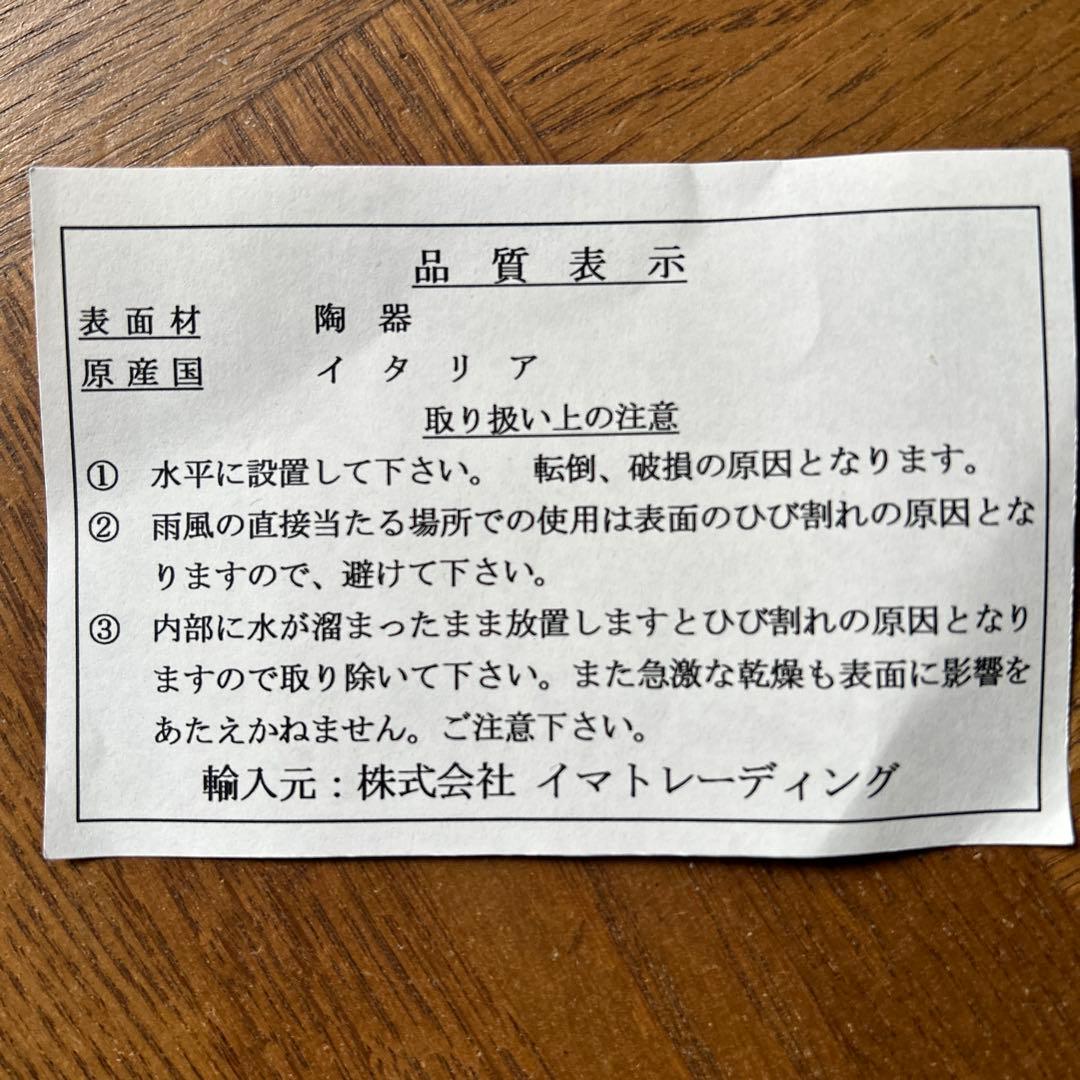 品質表示
表面材 陶器
原産国 イタリア
取り扱い上の注意
① 水平に設置して下さい。 転倒、破損の原因となります。
② 雨風の直接当たる場所での使用は表面のひび割れの原因とな
りますので、避けて下さい。
③ 内部に水が溜まったまま放置しますとひび割れの原因となり
ますので取り除いて下さい。また急激な乾燥も表面に影響を
あたえかねません。ご注意下さい。
輸入元：株式会社 イマトレーディング